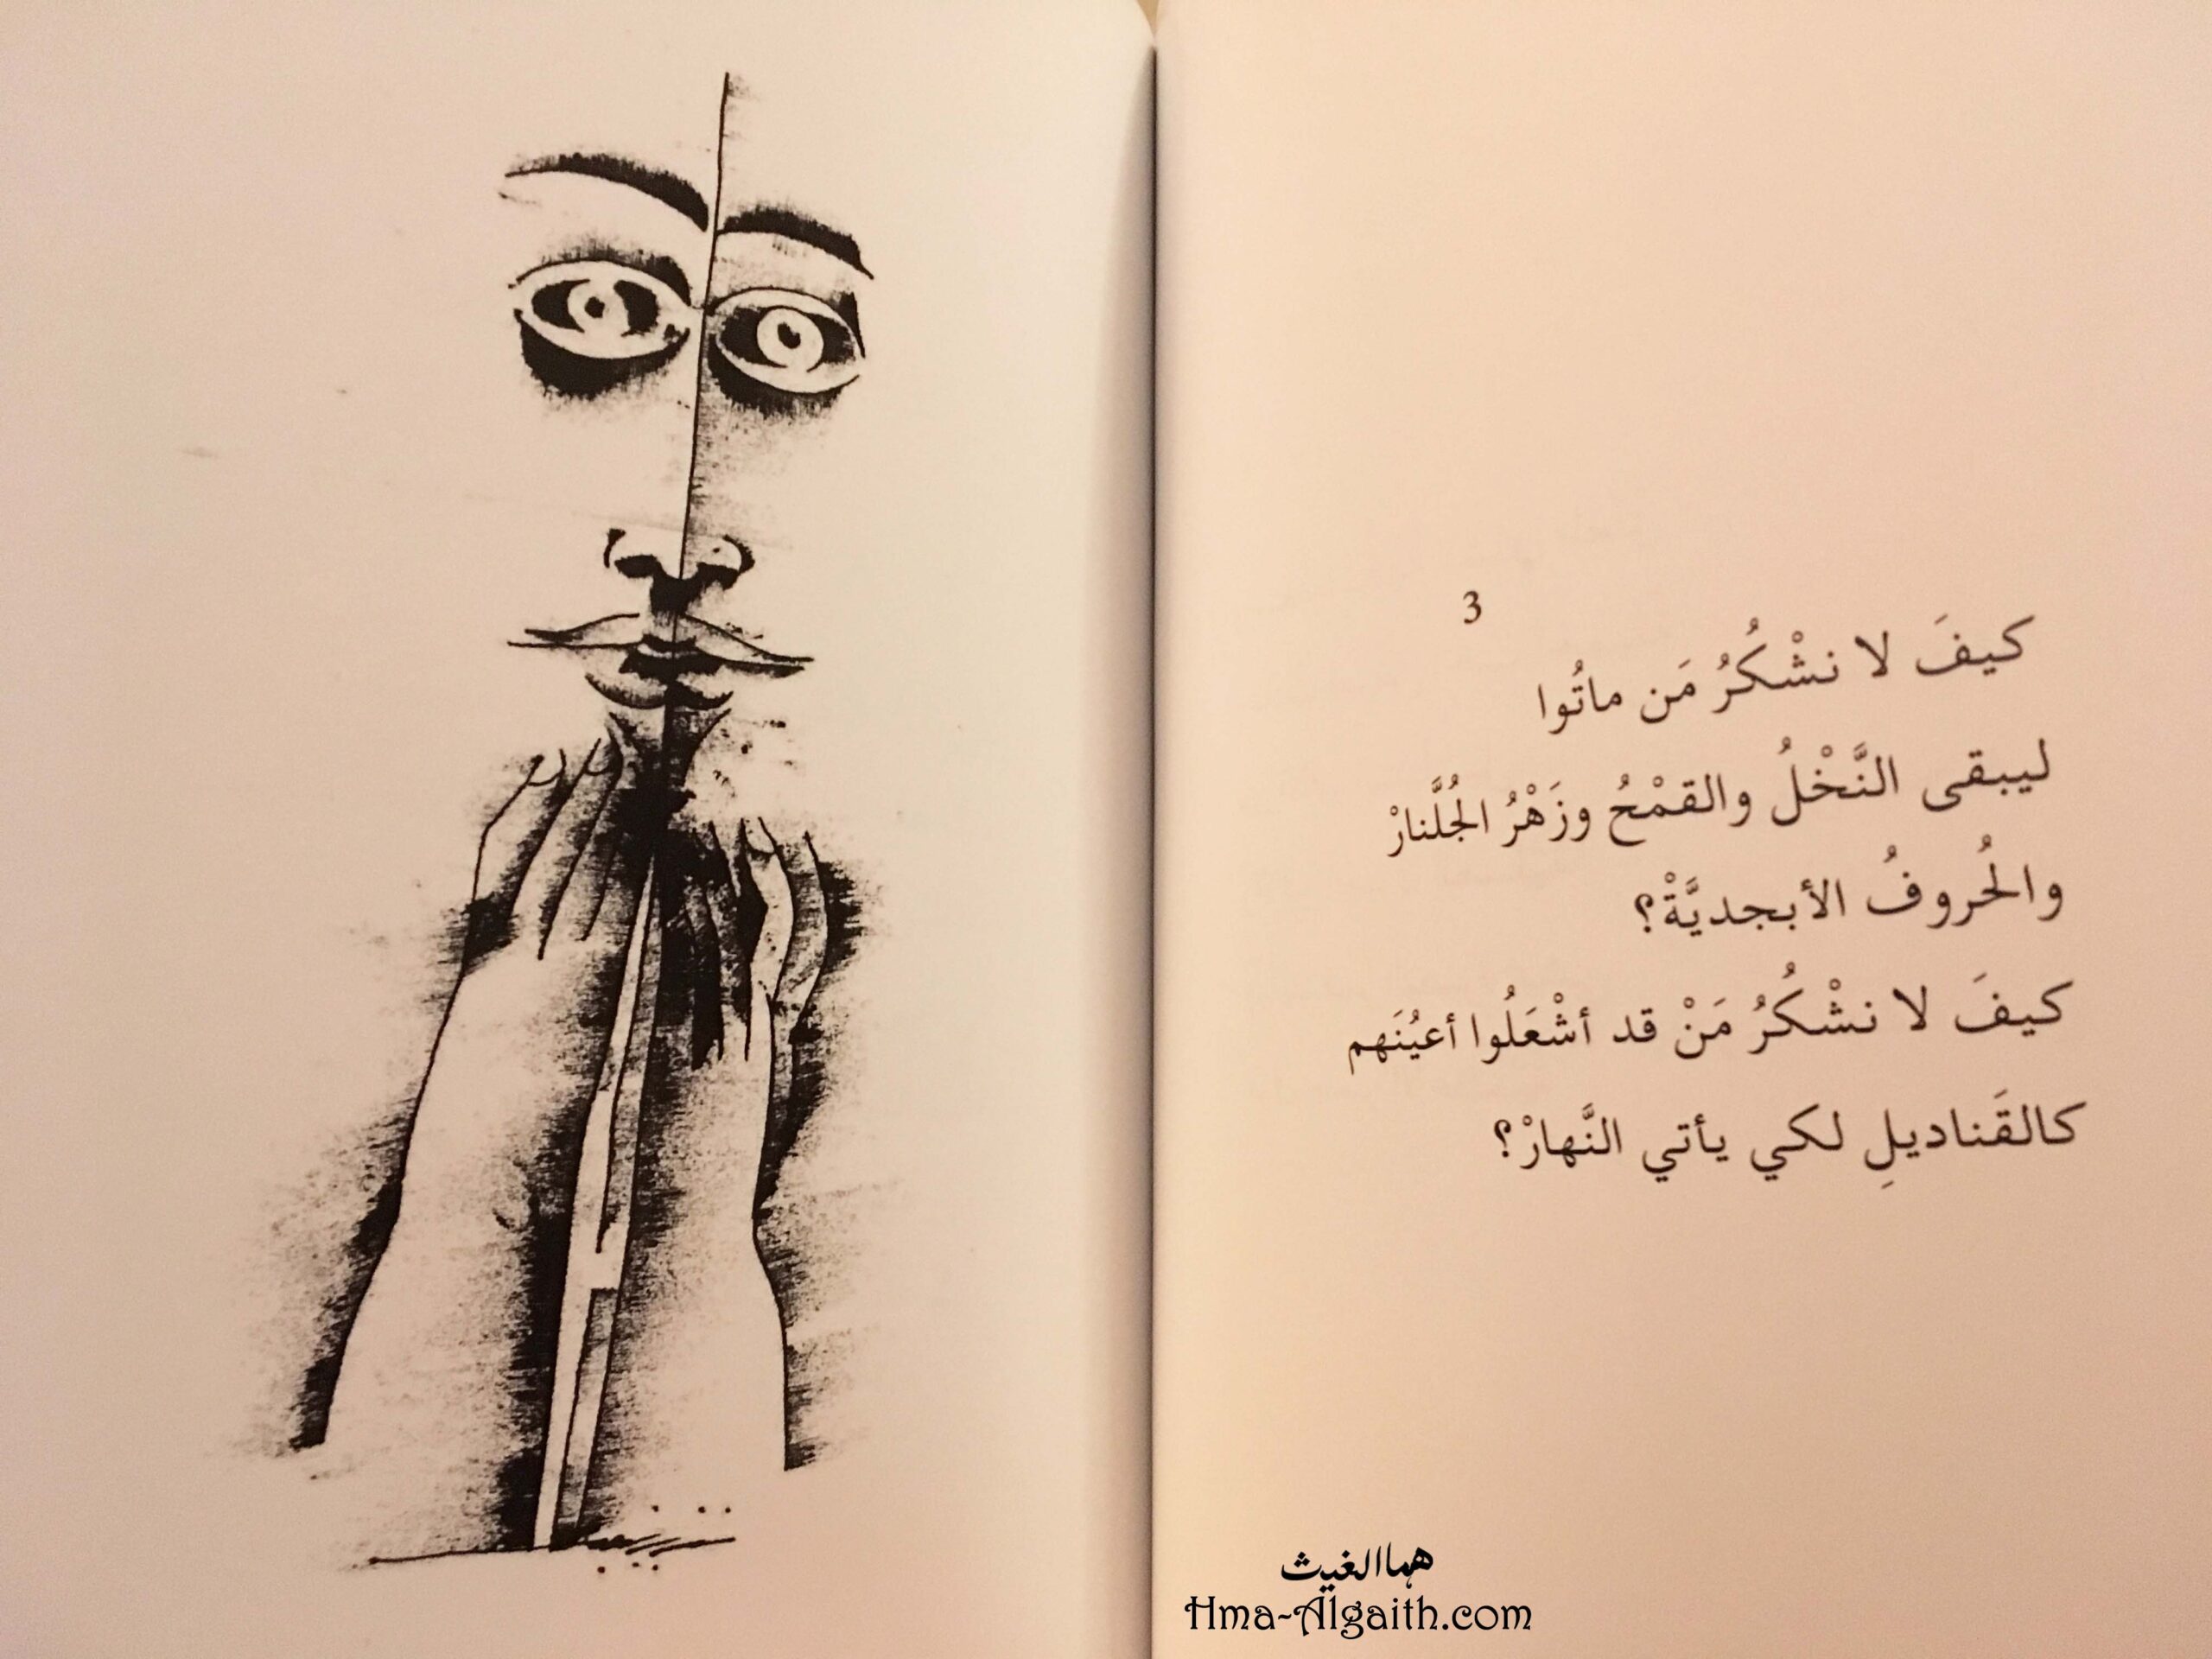 3
كيفَ لا نشْكُرُ مَن ماتُوا
ليبقى النَّخْلُ والقمْحُ وزَهْرُ الجُلَّنارْ
والحُروفُ الأبجديَّةْ؟
كيفَ لا نشْكُرُ مَنْ قد أشْعَلُوا أعيُنَهم
كالقَناديلِ لكي يأتي النَّهارْ؟
هماالغيث
Hma-Algaith.com